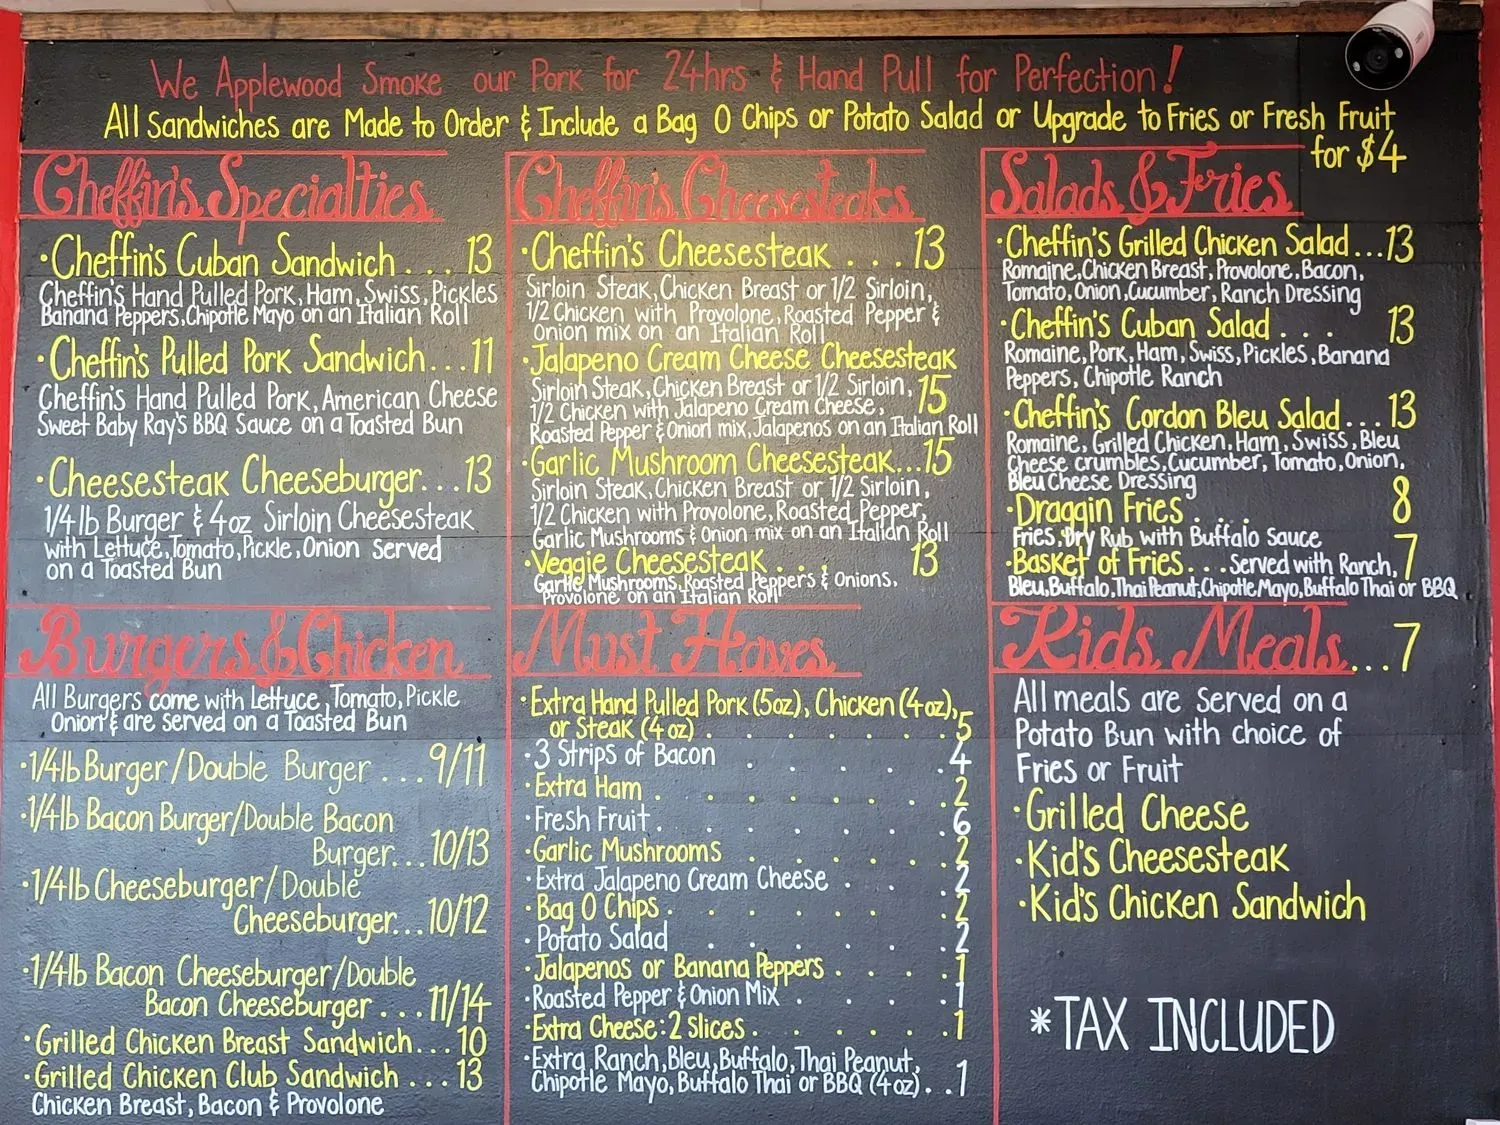 We Applewood Smoke our Pork for 24hrs & Hand Pull for Perfection!
All Sandwiches are Made to Order & Include a Bag O Chips or Potato Salad or Upgrade to Fries or Fresh Fruit
for $4
Cheffin's Specialties
·Cheffin's Cuban Sandwich . . . 13
Cheffin's Hand Pulled Pork, Ham, Swiss, Pickles
Banana Peppers, Chipotle Mayo on an Italian Roll
·Cheffin's Pulled Pork Sandwich...11
Cheffin's Hand Pulled Pork, American Cheese
Sweet Baby Ray's BBQ Sauce on a Toasted Bun
·Cheesesteak Cheeseburger...13
1/4 lb Burger & 4oz Sirloin Cheesesteak
with Lettuce, Tomato, Pickle, Onion served
on a Toasted Bun
Cheffin's Cheesesteaks
·Cheffin's Cheesesteak . . . 13
Sirloin Steak, Chicken Breast or 1/2 Sirloin,
1/2 Chicken with Provolone, Roasted Pepper &
Onion mix on an Italian Roll
·Jalapeno Cream Cheese Cheesesteak
Sirloin Steak, Chicken Breast or 1/2 Sirloin, 15
1/2 Chicken with Jalapeno Cream Cheese,
Roasted Pepper & Onion mix, Jalapenos on an Italian Roll
·Garlic Mushroom Cheesesteak...15
Sirloin Steak, Chicken Breast or 1/2 Sirloin,
1/2 Chicken with Provolone, Roasted Pepper,
Garlic Mushrooms & Onion mix on an Italian Roll
·Veggie Cheesesteak . . . 13
Garlic Mushrooms, Roasted Peppers & Onions,
Provolone on an Italian Roll
Salads & Fries
·Cheffin's Grilled Chicken Salad...13
Romaine, Chicken Breast, Provolone, Bacon,
Tomato, Onion, Cucumber, Ranch Dressing
·Cheffin's Cuban Salad . . . 13
Romaine, Pork, Ham, Swiss, Pickles, Banana
Peppers, Chipotle Ranch
·Cheffin's Cordon Bleu Salad...13
Romaine, Grilled Chicken, Ham, Swiss, Bleu
Cheese crumbles, Cucumber, Tomato, Onion,
Bleu Cheese Dressing
·Draggin Fries . . . 8
Fries, Dry Rub with Buffalo Sauce
·Basket of Fries...Served with Ranch, 7
Bleu, Buffalo, Thai Peanut, Chipotle Mayo, Buffalo Thai or BBQ
Burgers & Chicken
All Burgers come with Lettuce, Tomato, Pickle
Onion & are served on a Toasted Bun
·1/4lb Burger/Double Burger ...9/11
·1/4lb Bacon Burger/Double Bacon
Burger...10/13
·1/4lb Cheeseburger/Double
Cheeseburger...10/12
·1/4lb Bacon Cheeseburger/Double
Bacon Cheeseburger ...11/14
·Grilled Chicken Breast Sandwich...10
·Grilled Chicken Club Sandwich ...13
Chicken Breast, Bacon & Provolone
Must Haves
·Extra Hand Pulled Pork (5oz), Chicken (4oz),
or Steak (4oz) . . . . . . 5
·3 Strips of Bacon . . . . . 4
·Extra Ham . . . . . . . . 2
·Fresh Fruit . . . . . . . 6
·Garlic Mushrooms . . . . . . 2
·Extra Jalapeno Cream Cheese . . . 2
·Bag O Chips . . . . . . . 2
·Potato Salad . . . . . . 2
·Jalapenos or Banana Peppers . . . .1
·Roasted Pepper & Onion Mix . . . . .1
·Extra Cheese: 2 slices . . . . . .1
·Extra Ranch, Bleu, Buffalo, Thai Peanut,
Chipotle Mayo, Buffalo Thai or BBQ (4oz) . . 1
Kids Meals...7
All meals are served on a
Potato Bun with choice of
Fries or Fruit
·Grilled Cheese
·Kid's Cheesesteak
·Kid's Chicken Sandwich
*TAX INCLUDED